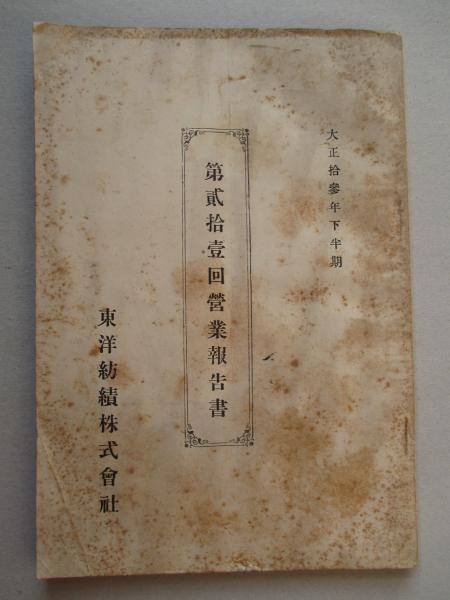 大正拾參年下半期
第貳拾壹回營業報告書
東洋紡績株式會社